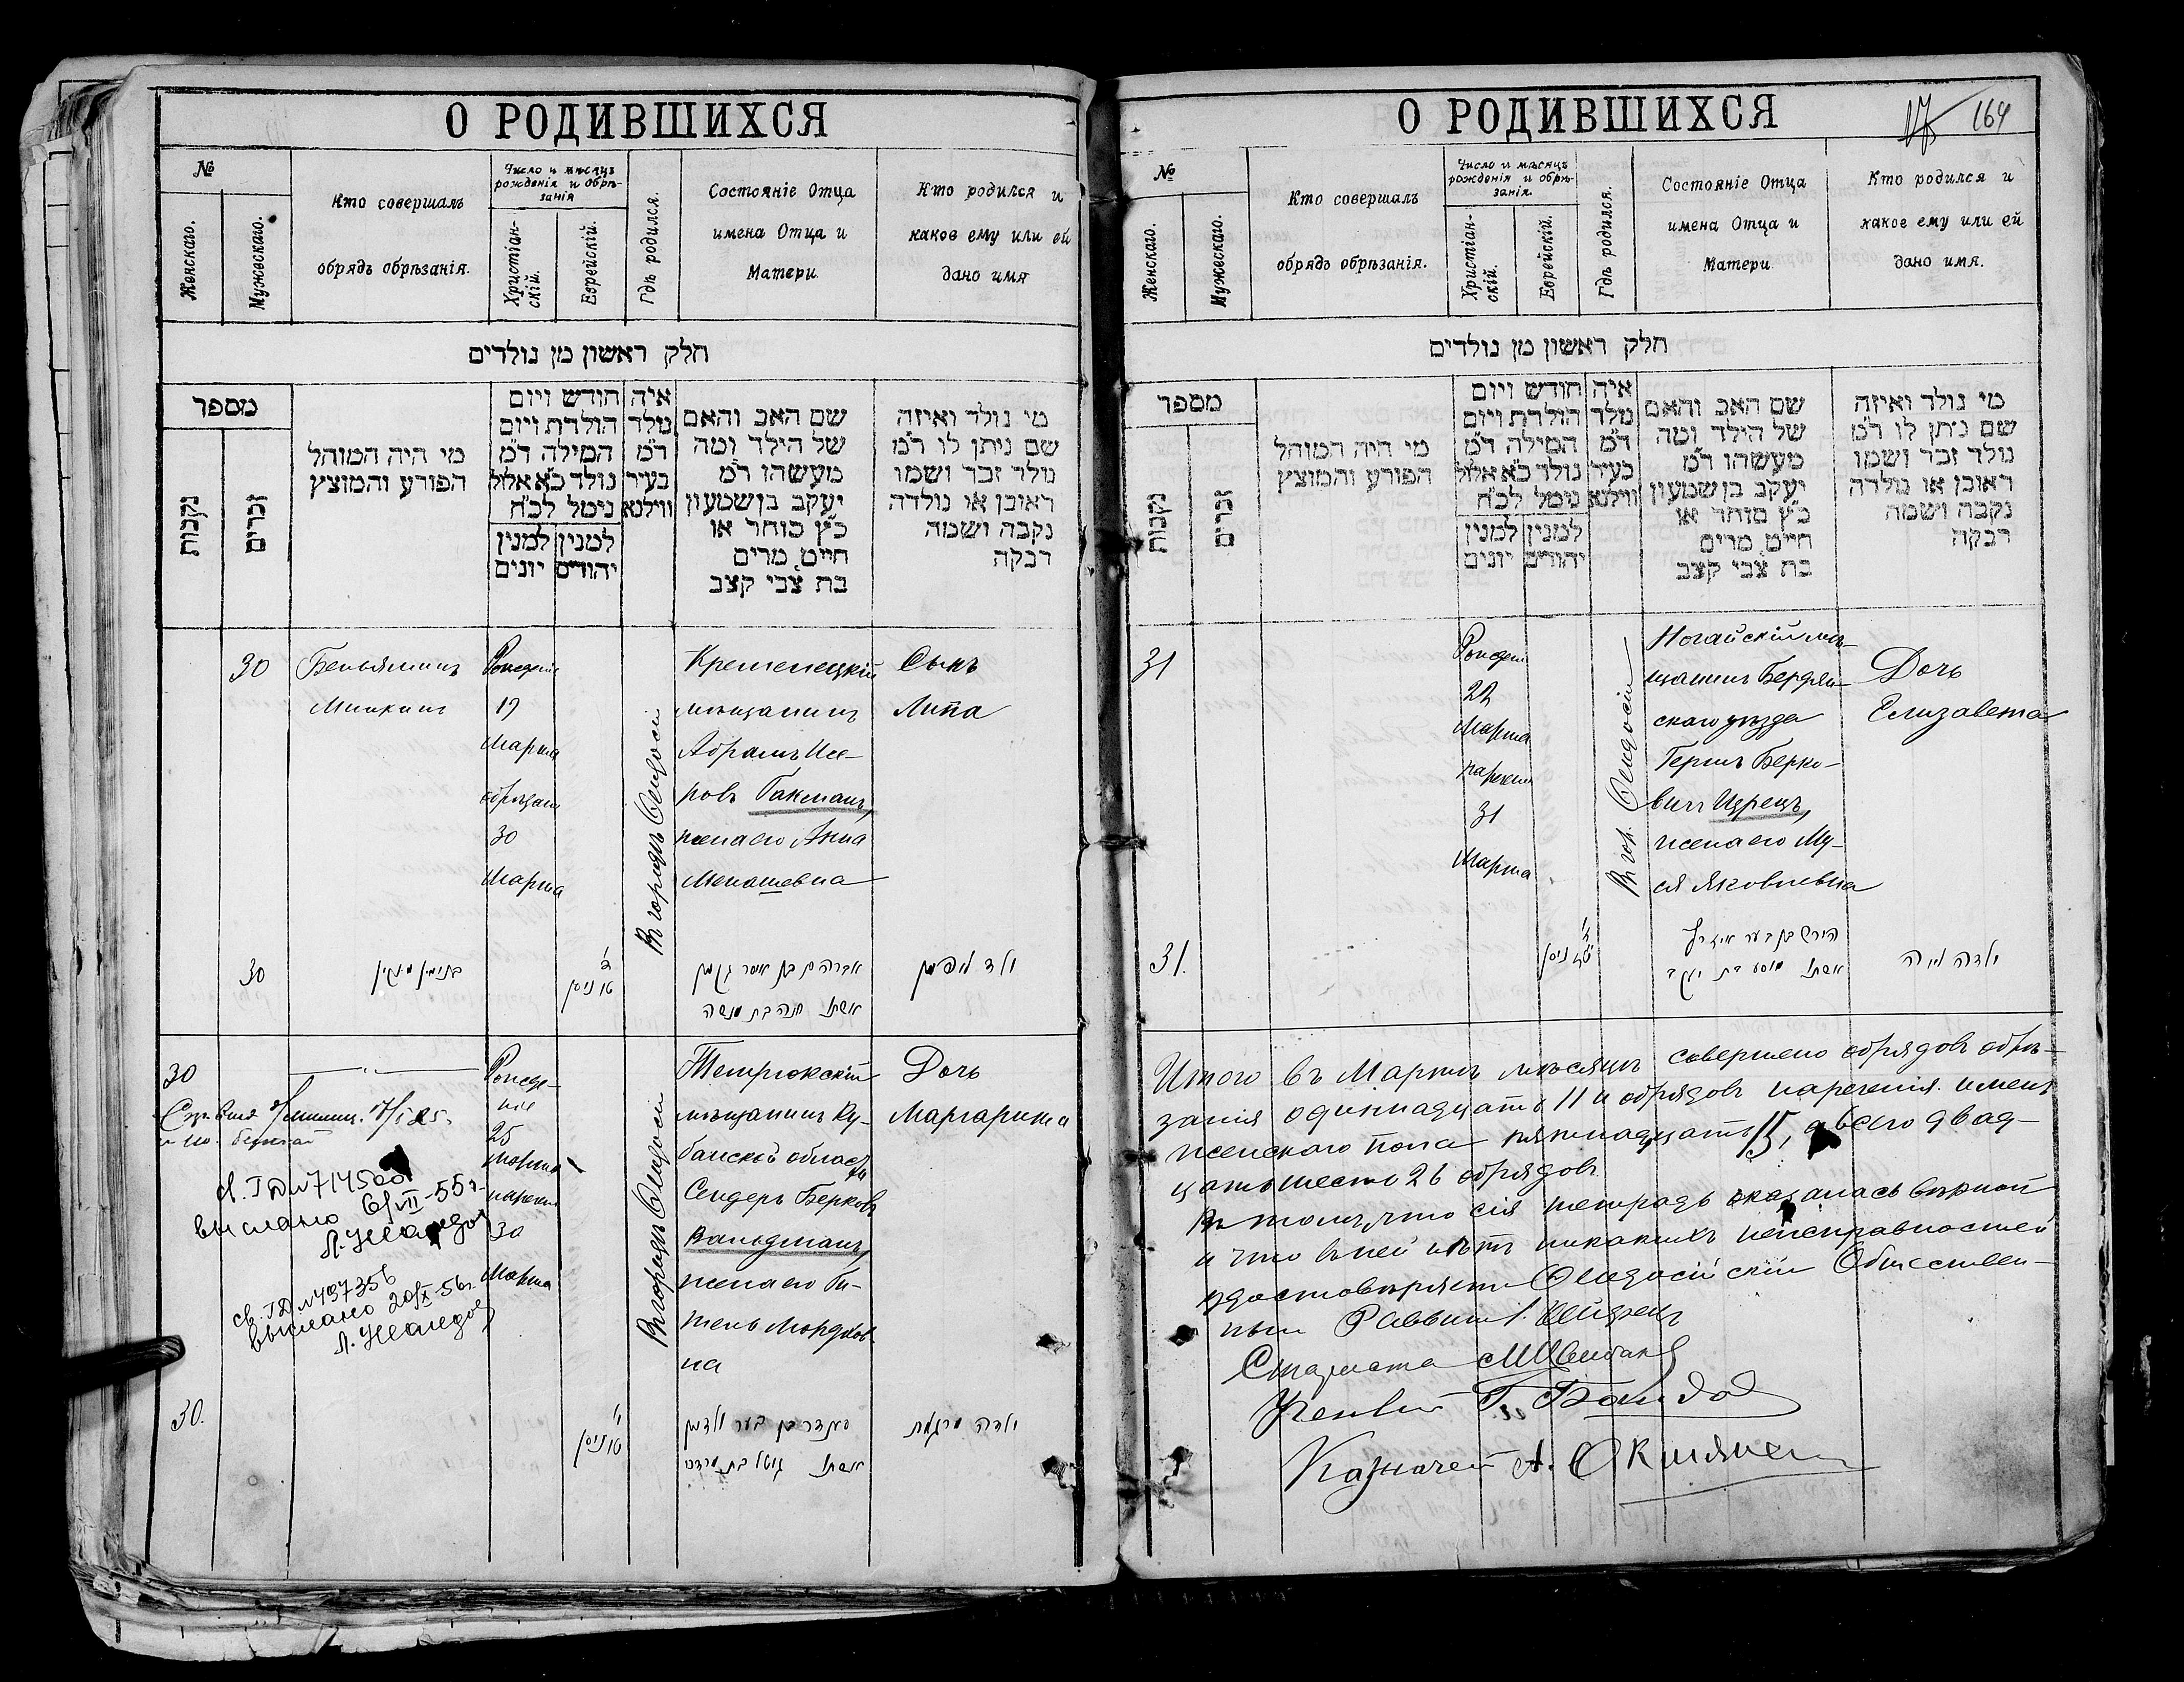 О РОДИВШИХСЯ
№
Женскаго.
Мужескаго.
Кто совершалъ
обрядъ обрѣзанія.
Число и мѣсяцъ
рожденія и обрѣ-
занія
Христіан-
скій.
Еврейскій.
Гдѣ родился.
Состояніе Отца
имена Отца и
Матери
Кто родился и
какое ему или ей
дано имя
חלק ראשון מן נולדים
מספר
נקבות
זכרים
מי היה המוהל
הפורע והמוצץ
חודש ויום
הולדת ויום
המילה ד״מ
נולד כ״א אלול
נימל לכ״ח
למנין למנין
יהודים יונים
איה
נולד
ד״מ
בעיר
ווילנא
שם האב והאם
של הילד ומה
מעשהו ד״מ
יעקב בן שמעון
כ״ץ סוחר או
חייט מרים
בת צבי קצב
מי נולד ואיזה
שם ניתן לו ד״מ
נולד זכר ושמו
ראובן או נולדה
נקבה ושמה
רבקה
30
Беньяминъ
Минкинъ
19
Марта
30
Марта
Въ городѣ Ѳеодосіи
Кременецкій
мѣщанинъ
Абрамъ Исе-
ровъ Гакманъ,
жена его Анна
Менашевна
Сынъ
Липа
30
בנימין מינקין
ט״ו ניסן
אברהם בן איסר גקמן
אשתו חנה בת מנשה
ילד ליפמן
30
Рожде-
ніе
25
Марта
30
Марта
Въ городѣ Ѳеодосіи
Темрюкскій
мѣщанинъ Ку-
банской области
Сендеръ Берковъ
Вальдманъ,
жена его Ги-
тель Мордков-
на
Дочь
Маргарита
св. ГД №714500
выслано 6/VII-55г.
св. ГД №497356
выслано 20/X-56г.
30.
סענדר בן בער ולדמן
אשתו גוטל בת מרדכי
ילדה מרגלית
О РОДИВШИХСЯ
164
№
Женскаго.
Мужескаго.
Кто совершалъ
обрядъ обрѣзанія.
Число и мѣсяцъ
рожденія и обрѣ-
занія
Христіан-
скій.
Еврейскій.
Гдѣ родился.
Состояніе Отца
имена Отца и
Матери
Кто родился и
какое ему или ей
дано имя.
חלק ראשון מן נולדים
מספר
נקבות
זכרים
מי היה המוהל
הפורע והמוצץ
חודש ויום
הולדת ויום
המילה ד״מ
נולד כ״א אלול
נימל לכ״ח
למנין למנין
יהודים יונים
איה
נולד
ד״מ
בעיר
ווילנא
שם האב והאם
של הילד ומה
מעשהו ד״מ
יעקב בן שמעון
כ״ץ סוחר או
חייט מרים
בת צבי קצב
מי נולד ואיזה
שם ניתן לו ד״מ
נולד זכר ושמו
ראובן או נולדה
נקבה ושמה
רבקה
31
Марта
31
Марта
Въ гор. Ѳеодосіи
Ногайскій мѣ-
щанинъ Бердян-
скаго уѣзда
Гершъ Берко-
вичъ
жена его Му-
ся Яковлевна
Дочь
Елизавета
31.
ניסן
הירש בן בער
אשתו מוסע בת יעקב
ילדה
Итого въ Мартѣ мѣсяцѣ совершено обрядовъ обрѣ-
занія одиннадцать 11 и обрядовъ нареченія именъ
женскаго пола пятнадцать 15, а всего двад-
цать шесть 26 обрядовъ.
Въ томъ, что сія тетрадь оказалась вѣрной
и что въ ней нѣтъ никакихъ неисправностей
удостовѣряетъ Ѳеодосійскій Обществен-
ный Раввинъ
Староста
Казначей А.